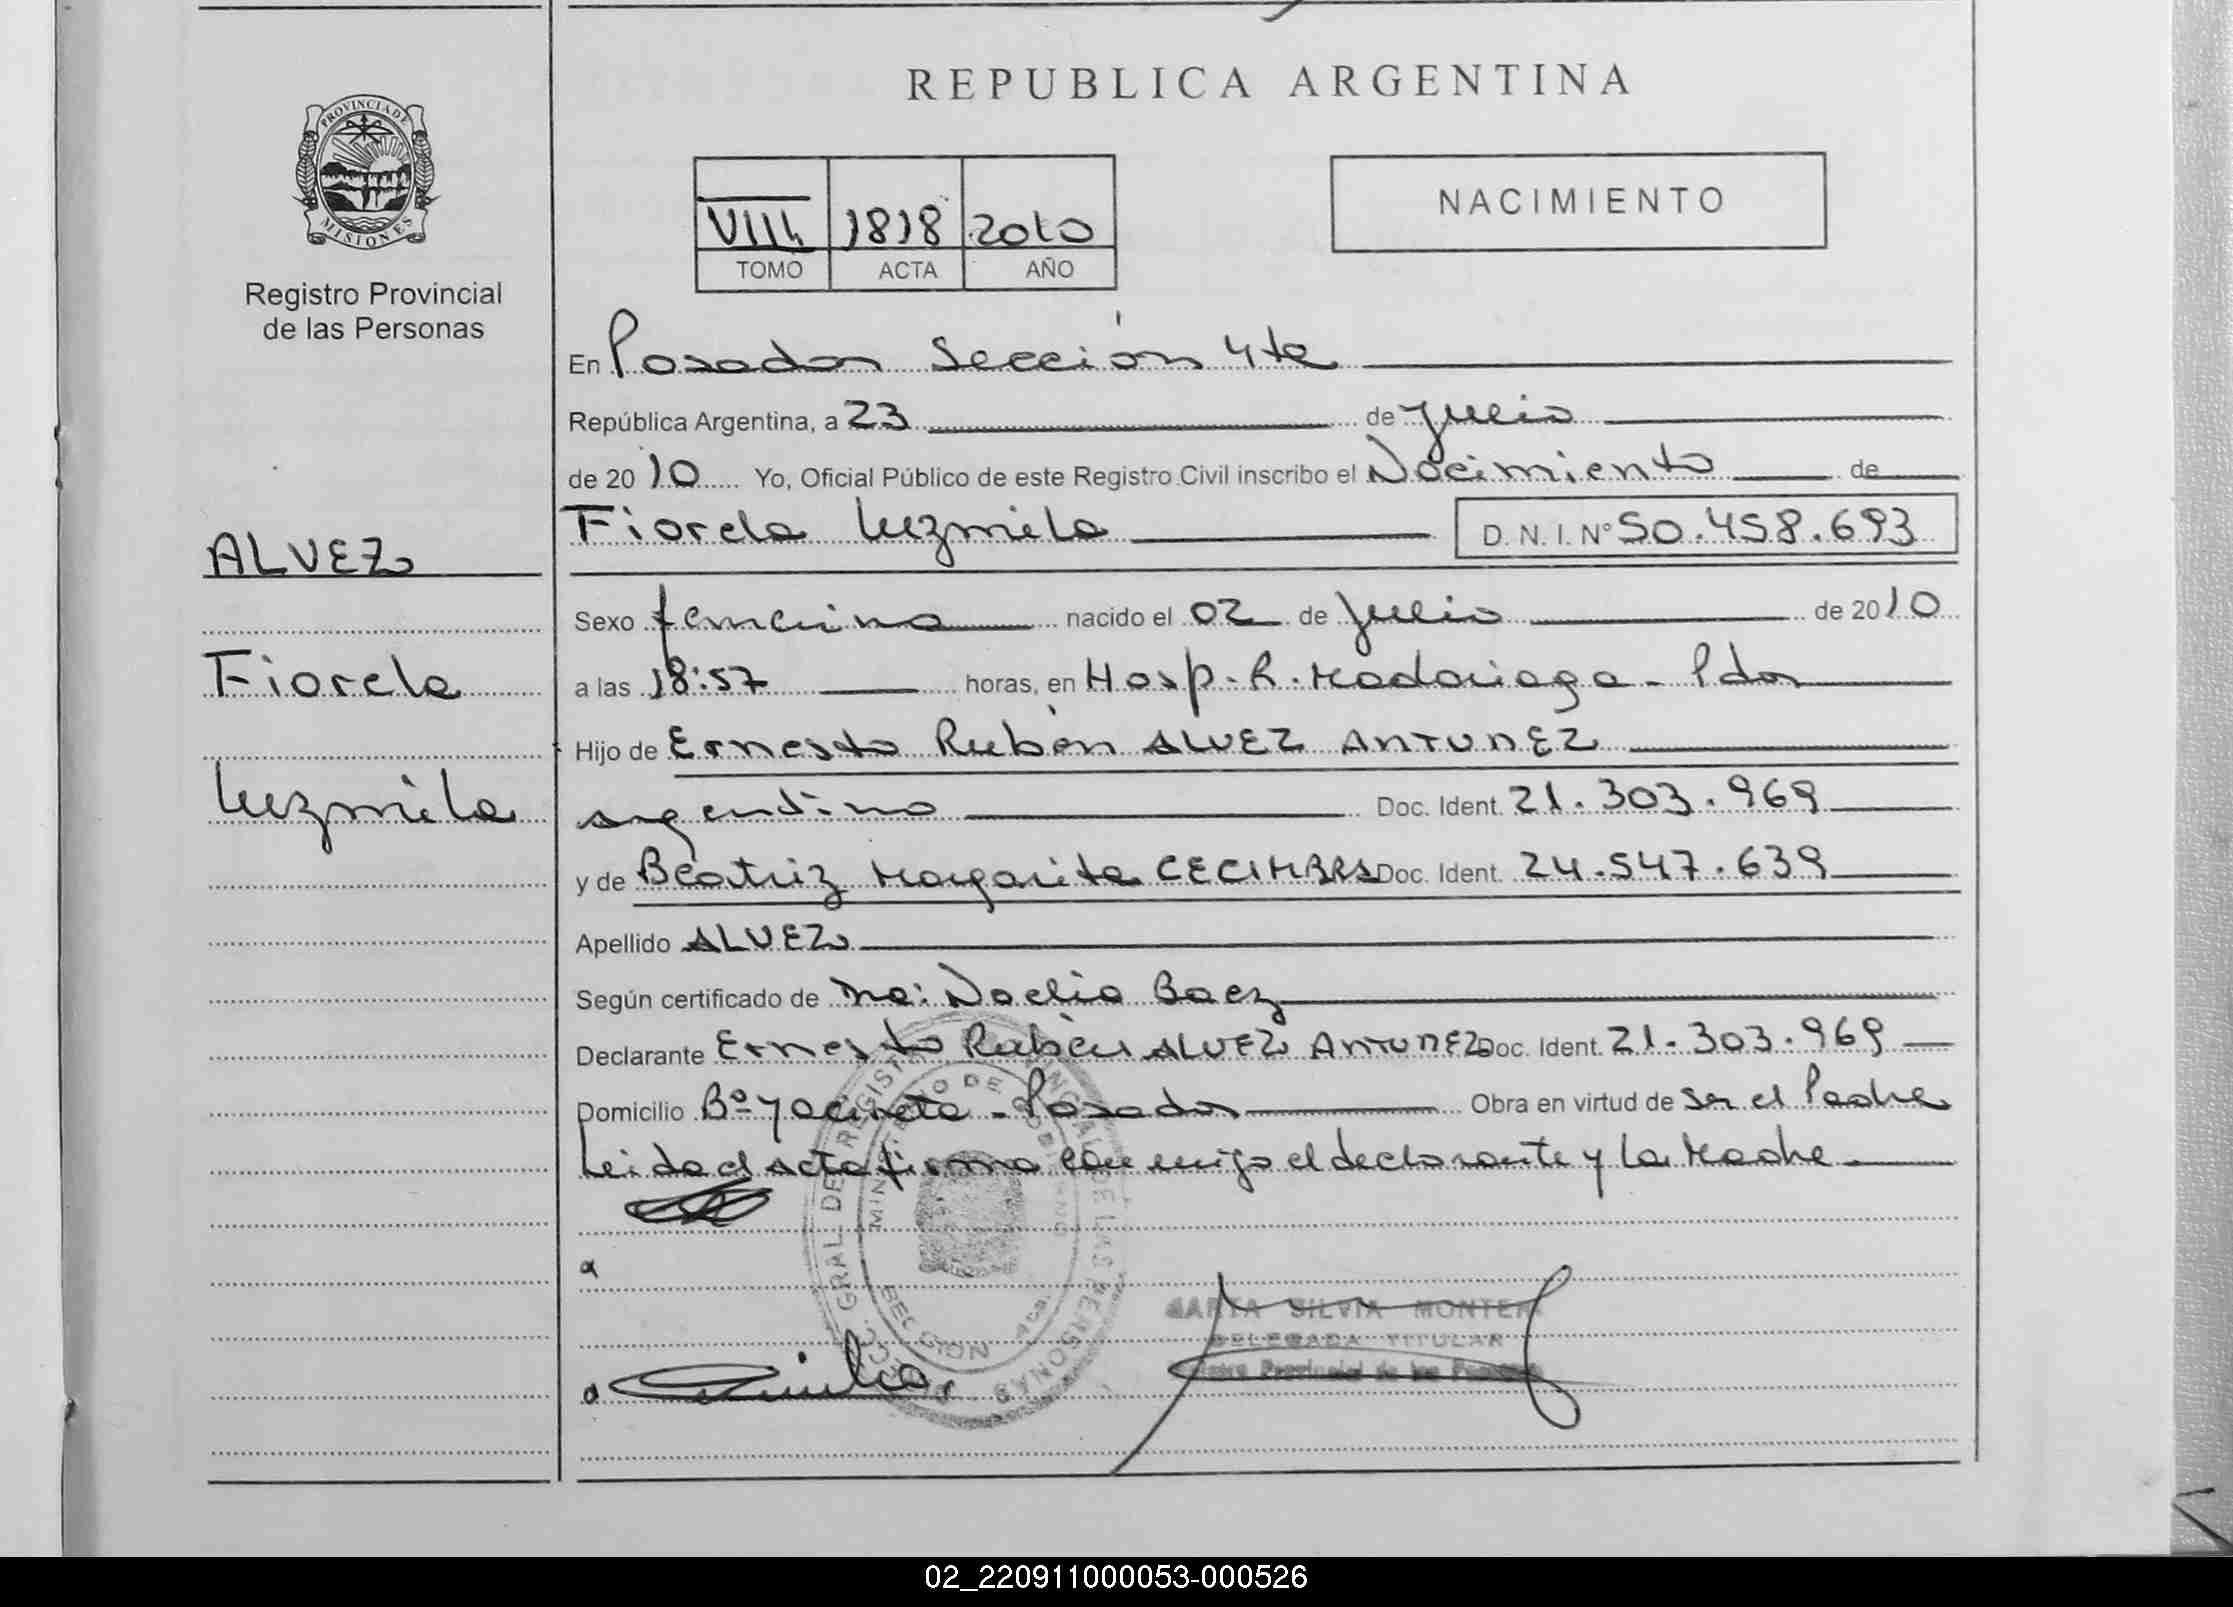 REPUBLICA ARGENTINA
PROVINCIA DE
MISIONES
Registro Provincial
de las Personas
NACIMIENTO
VIII 1818 2010
TOMO ACTA AÑO
En Posadas Sección 4ta
República Argentina, a 23 de Julio
de 2010 Yo, Oficial Público de este Registro Civil inscribo el Nacimiento de
Fiorela Luzmila D. N. I. Nº 50.458.693
ALVEZ
Fiorela
Luzmila
Sexo femenino nacido el 02 de Julio de 2010
a las 18:57 horas, en Hosp. R. Madariaga - Pdas
Hijo de Ernesto Rubén ALVEZ ANTUNEZ
argentino Doc. Ident. 21.303.969
y de Beatriz Margarita Doc. Ident. 24.547.639
Apellido ALVEZ
Según certificado de Noelia Baez
Declarante Ernesto Rubén ALVEZ ANTUNEZ Doc. Ident. 21.303.969
Domicilio Bº Yacireta - Posadas Obra en virtud de ser el Padre
Leida el acta firma conmigo el declarante y la Madre
SILVIA MONTER
DELEGADA TITULAR
Provincial de las
02_220911000053-000526